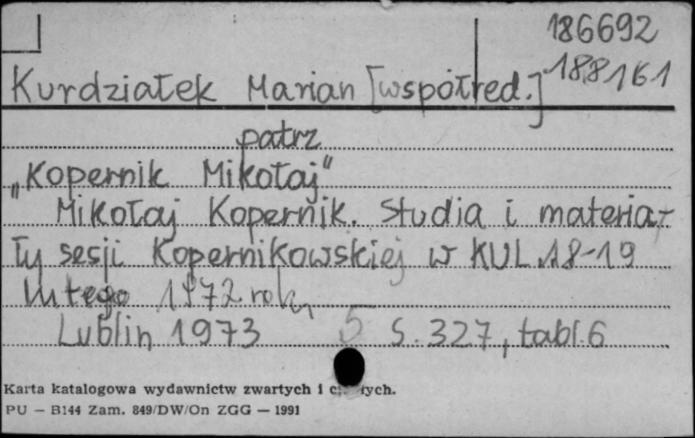 186692
Kurdziałek Marian [współred.] 188161
patrz
„Kopernik Mikołaj"
Mikołaj Kopernik. Studia i materia-
ły sesji Kopernikowskiej w KUL 18-19
lutego 1972 roku
Lublin 1973 5 S. 327, tabl. 6
Karta katalogowa wydawnictw zwartych i
PU — B144 Zam. 849/DW/On ZGG — 1991